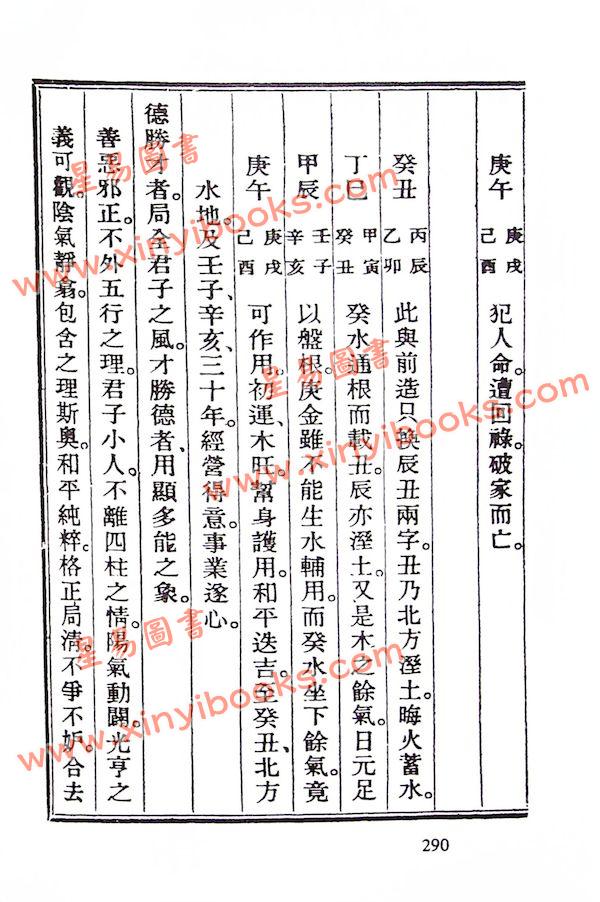 庚午 庚戌 己酉 犯人命。遭回祿。破家而亡。
癸丑 丙辰 乙卯 此與前造只換辰丑兩字。丑乃北方溼土。晦火蓄水。
丁巳 甲寅 癸丑 癸水通根而載丑。辰亦溼土。又是木之餘氣。日元足
甲辰 壬子 辛亥 以盤根。庚金雖不能生水輔用。而癸水坐下餘氣。竟
庚午 庚戌 己酉 可作用。初運木旺。幫身護用。和平迭吉。至癸丑、北方
水地。及壬子、辛亥、三十年。經營得意。事業遂心。
德勝才者。局全君子之風。才勝德者、用顯多能之象。
善惡邪正。不外五行之理。君子小人。不離四柱之情。陽氣動闢。光亨之
義可觀。陰氣靜翕。包含之理斯奧。和平純粹。格正局清。不爭不妒。合去
290
星易圖書
www.xinyibooks.com
星易圖書
www.xinyibooks.com
星易圖書
www.xinyibooks.com